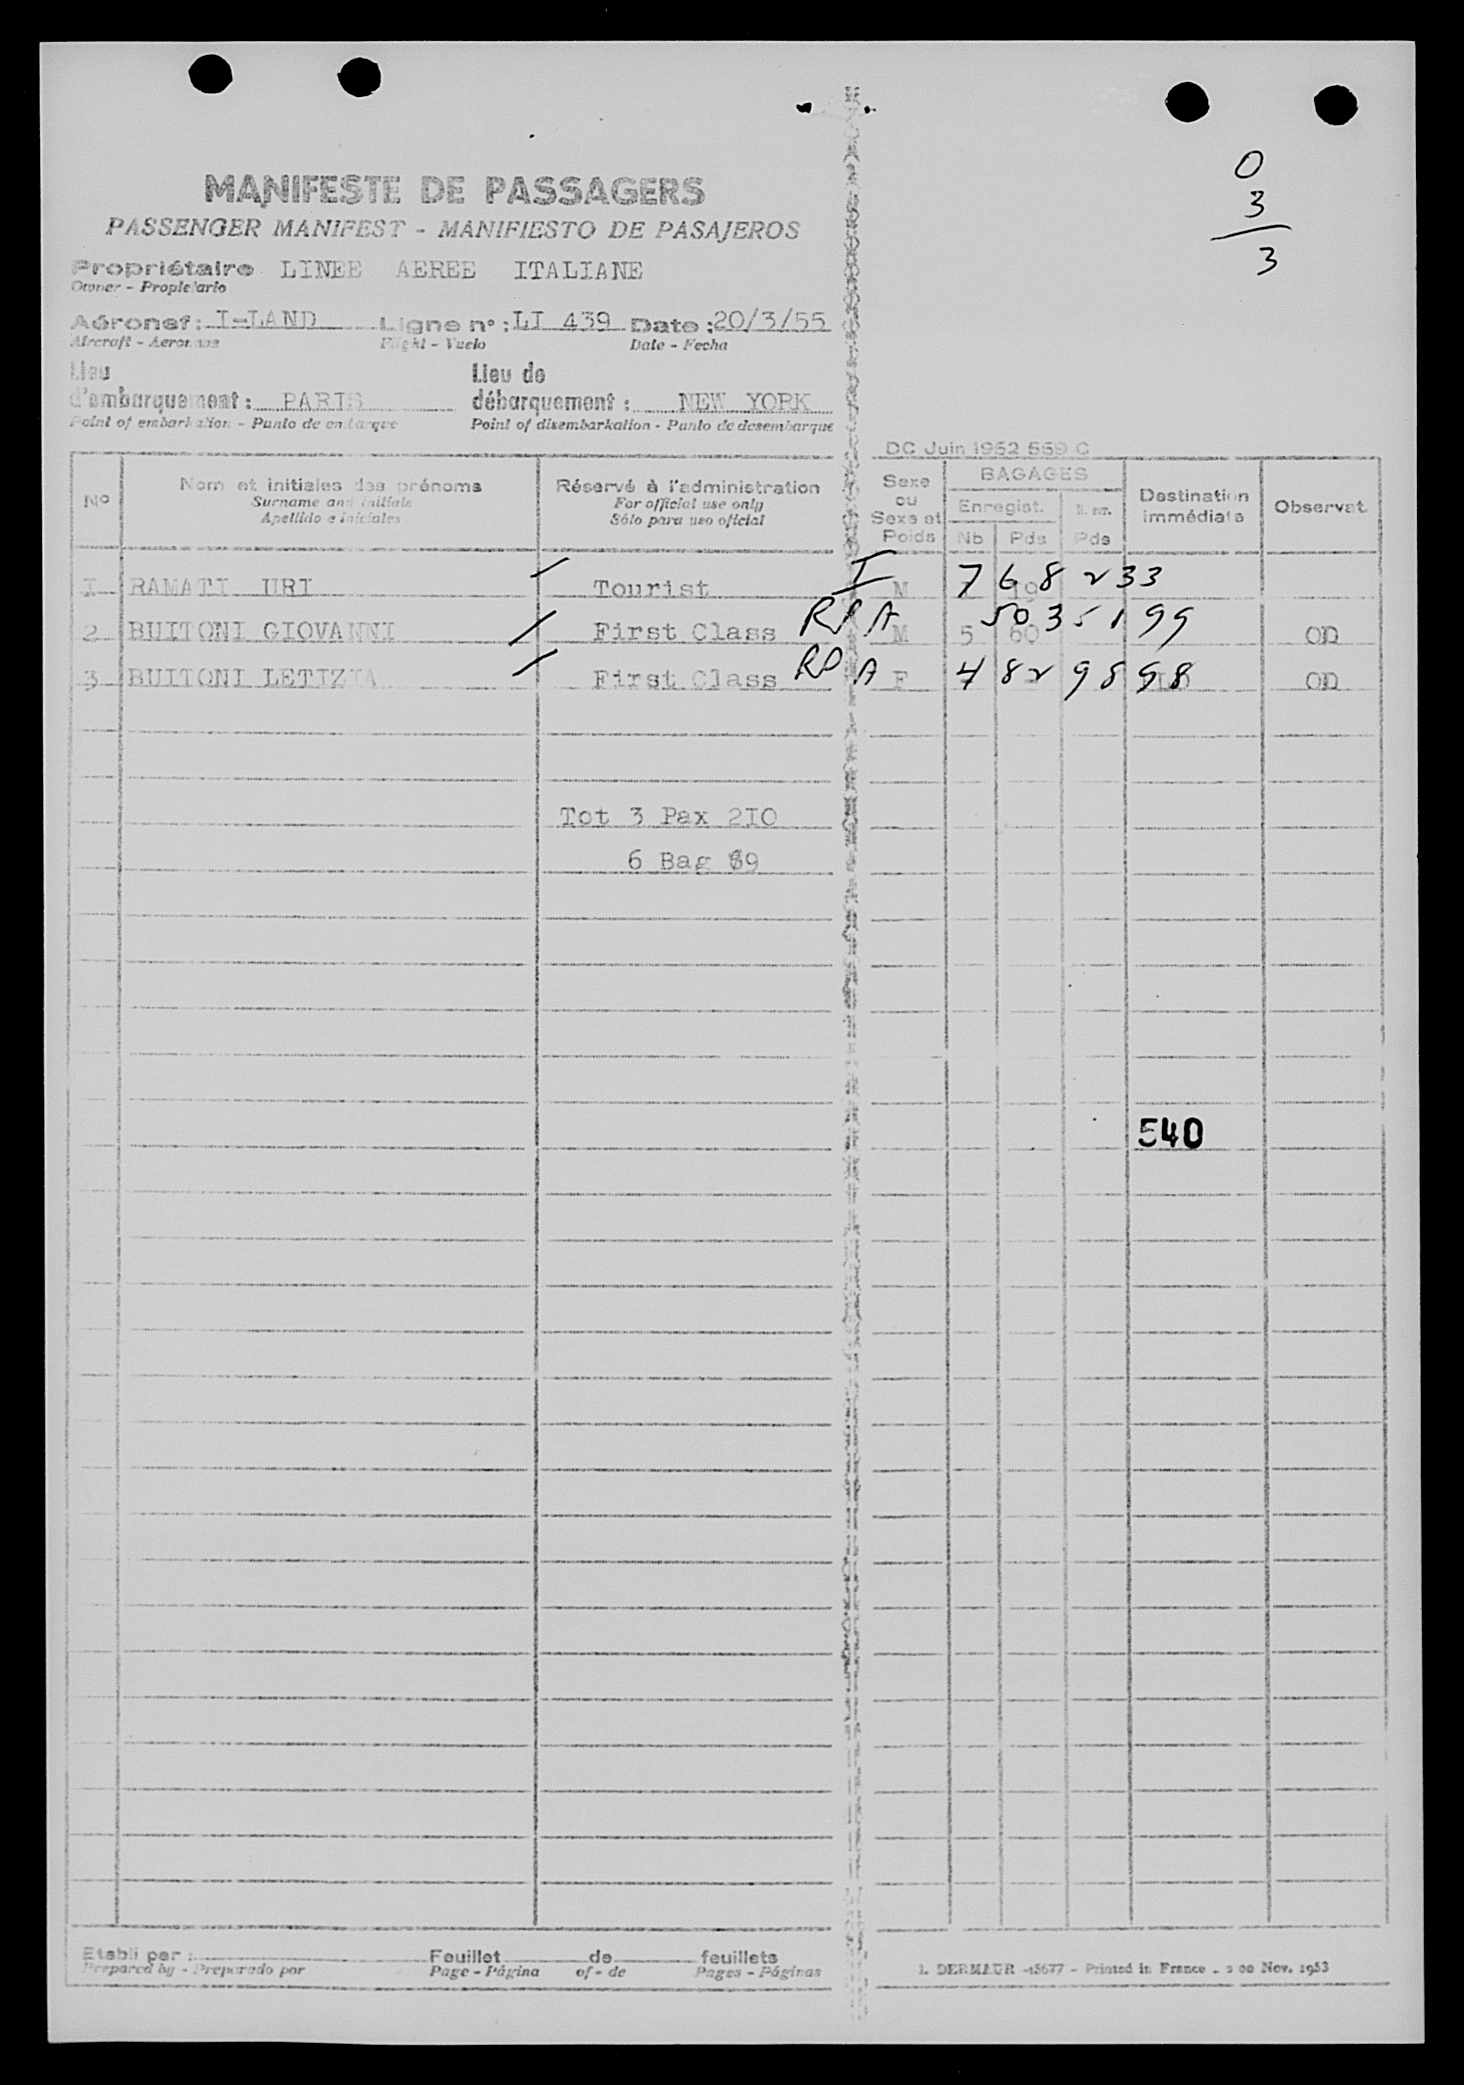 0
3
3
MANIFESTE DE PASSAGERS
PASSENGER MANIFEST - MANIFIESTO DE PASAJEROS
Propriétaire LINEE AEREE ITALIANE
Owner - Propietario
Aéronef : I-LAND Ligne n° : LI 439 Date : 20/3/55
Aircraft - Aeronave Flight - Vuelo Date - Fecha
Lieu d'embarquement : PARIS Lieu de débarquement : NEW YORK
Point of embarkation - Punto de embarque Point of disembarkation - Punto de desembarque
DC Juin 1952 559 C
N° Nom et initiales des prénoms Réservé à l'administration Sexe ou Sexe et Poids BAGAGES Destination immédiate Observat.
Surname and initials For official use only Enregist.
Apellido e iniciales Sólo para uso oficial Nb Pds Pds
I RAMATI URI / Tourist I M 7 6 8 2 33
2 BUITONI GIOVANNI / First Class RP A M 5 60 5035199 OD
3 BUITONI LETIZIA / First Class RP A F 4829898 OD
Tot 3 Pax 2I0
6 Bag 89
540
Etabli par : Feuillet de feuillets
Prepared by - Preparado por Page - Página of - de Pages - Páginas
DERMAUR - Printed in France - Nov. 1953